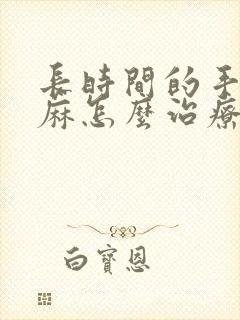 長時間的手
麻怎麼治療
白寶恩